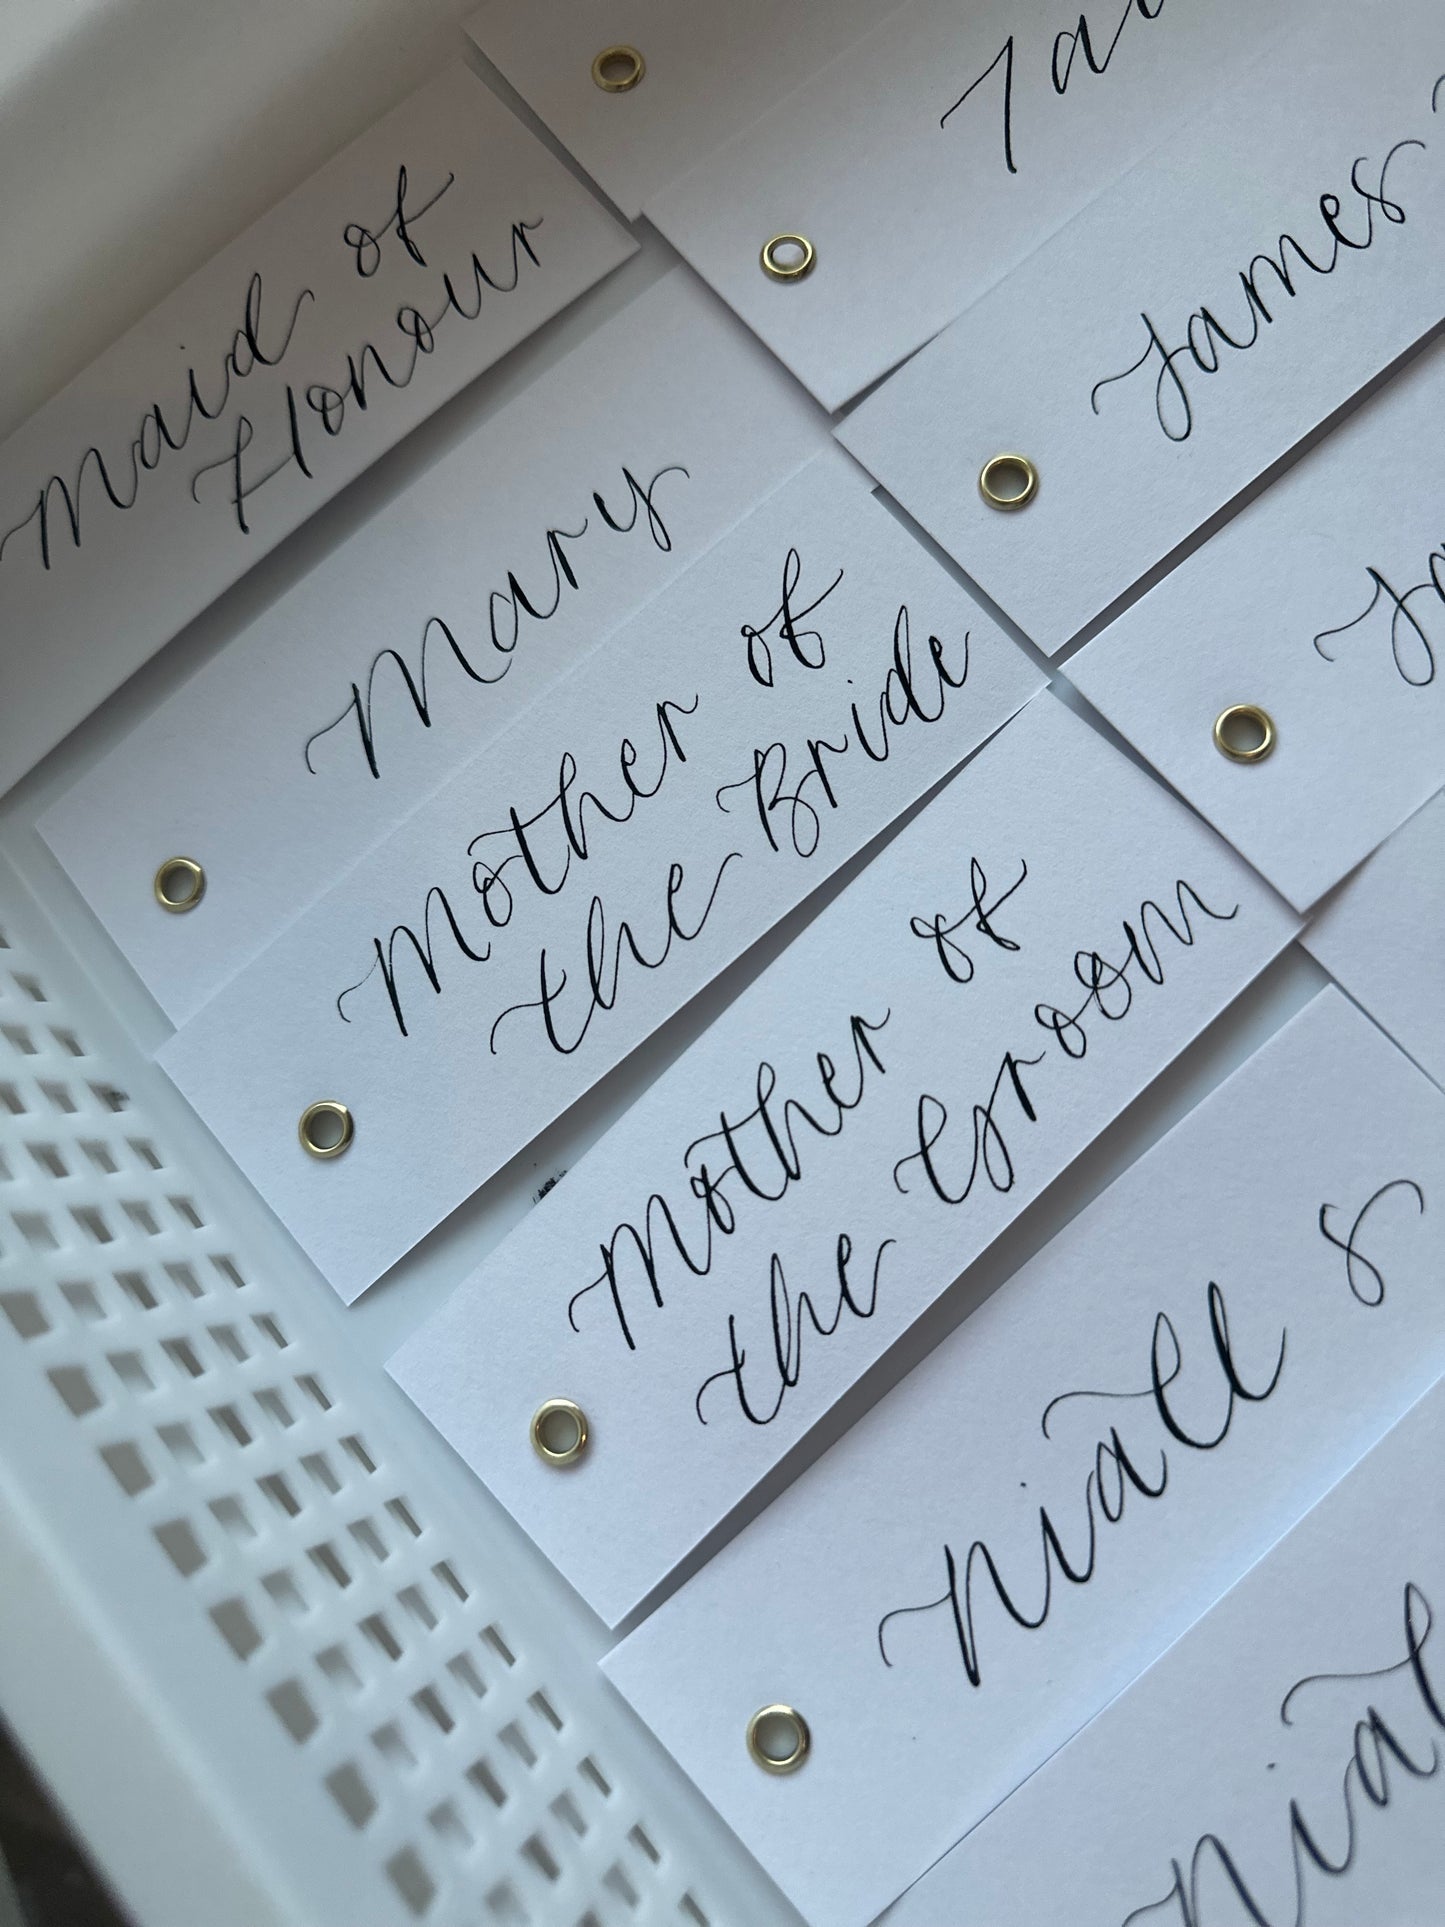 Maid of
Honour
Mary
Mother of
the Bride
Mother of
the Groom
Niall &
James